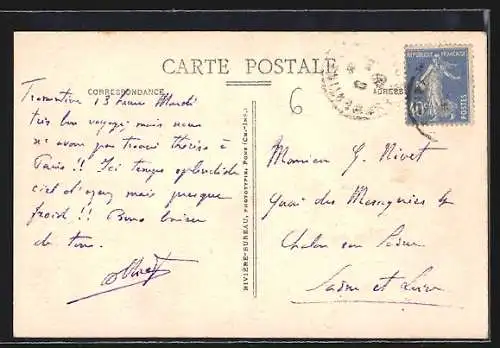 CARTE POSTALE
CORRESPONDANCE
ADRESSE
RÉPUBLIQUE FRANÇAISE
POSTES
6
13 heures Mardi
Très bon voyage mais nous
n'avons pas trouvé Thérèse à
Paris !! Ici temps splendide
ciel d'azur mais presque
froid !! Bons baisers
de tous
Monsieur G. Nivet
Quai des Messageries
Chalon sur Saône
Saône et Loire
RIVIÈRE-BUREAU, PHOTOTYPIE, PONS (CH.-INF.)